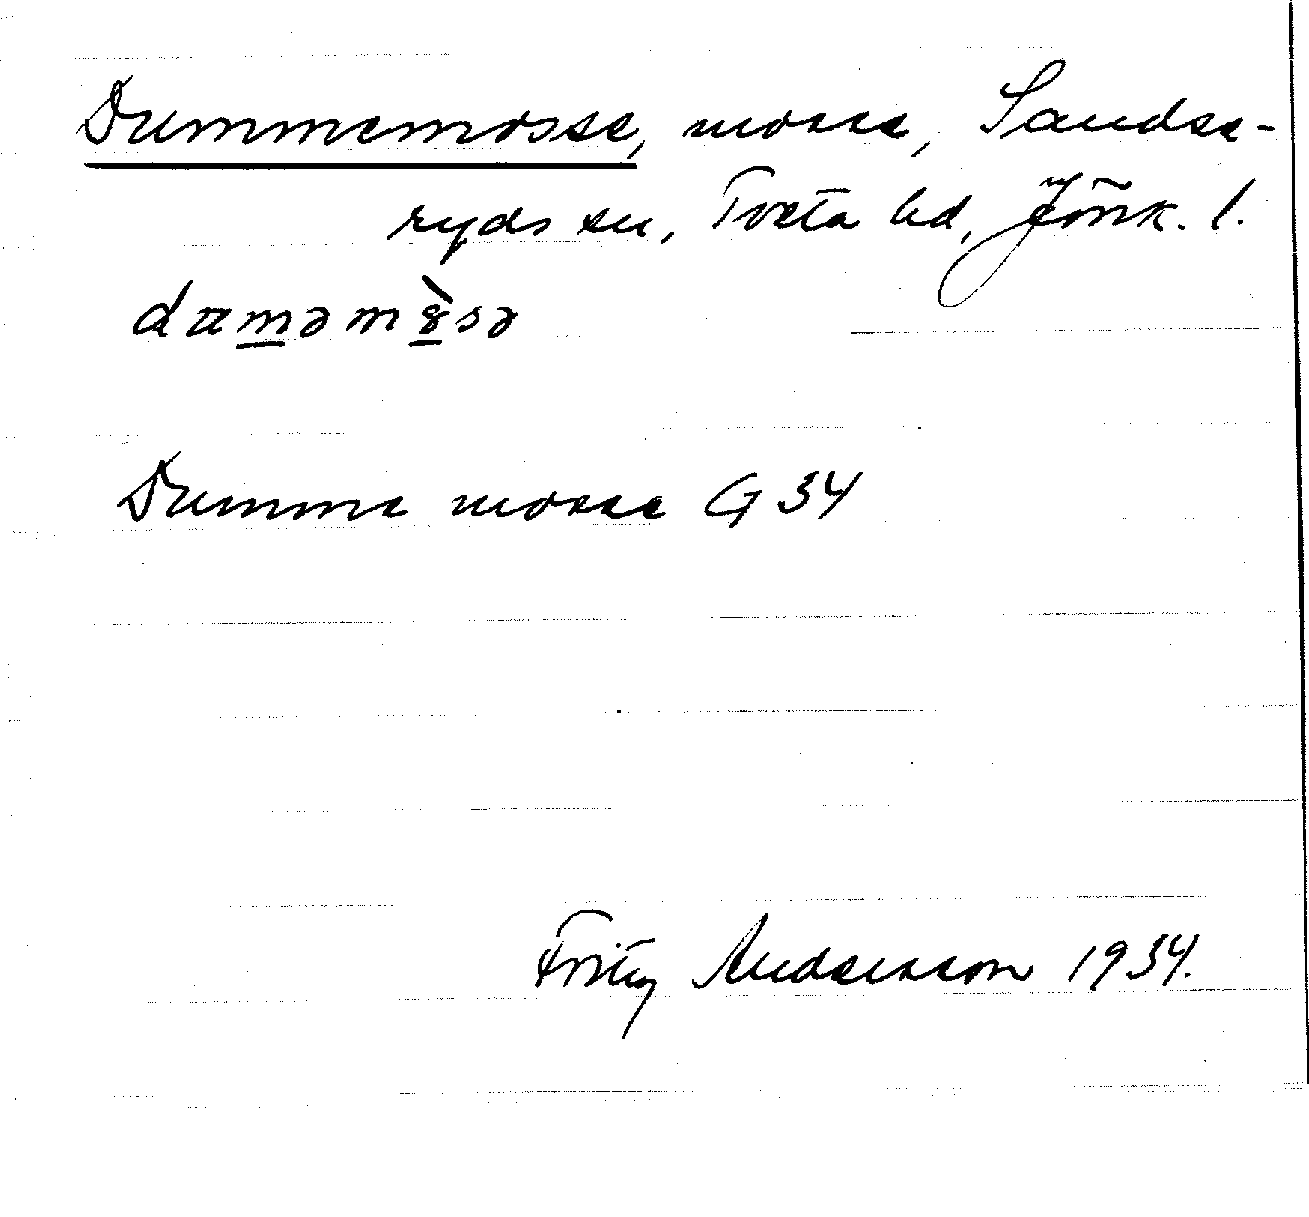 Dummemosse, mosse, Sandse-
ryds sn, Tveta hd, Jönk. l.
Dumme mosse G 34
Fritz Andersson 1934.